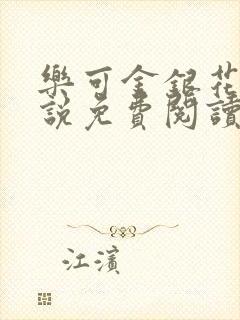 樂可金銀花
說免費閱讀
江濱